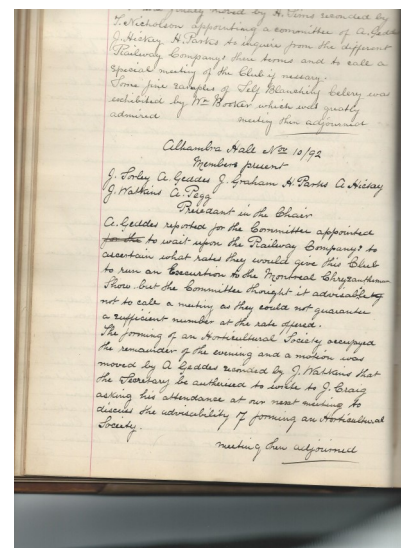 moved by H. Sims seconded by
T. Nicholson appointing a committee of A. Geddes
J. Hickey H. Parks to enquire from the different
Railway Companys there terms and to call a
special meeting of the Club if nessary.
Some fine samples of Self Blanching Celery was
exhibited by Wm Booker which was greatly
admired meeting then adjourned
Alhambra Hale Nov 10/92
Members present
J. Sorley A. Geddes J. Graham H. Parks A. Hickey
J. Watkins A. Pegg
Presedant in the Chair
A. Geddes reported for the Committee appointed
for the to wait upon the Railway Companys to
ascertain what rates they would give this Club
to run an Excursion to the Montreal Chrysanthemum
Show. but the Committee thought it adviseable
not to cale a meeting as they could not guarantee
a sufficient number at the rate offered.
The forming of an Horticultural Society occupyed
the remainder of the evening and a motion was
moved by A Geddes seconded by J. Watkins that
the Secretary be authorised to write to J. Craig
asking his attendance at our next meeting to
discuss the adviseability of forming an Horticultural
Society.
meeting then adjourned